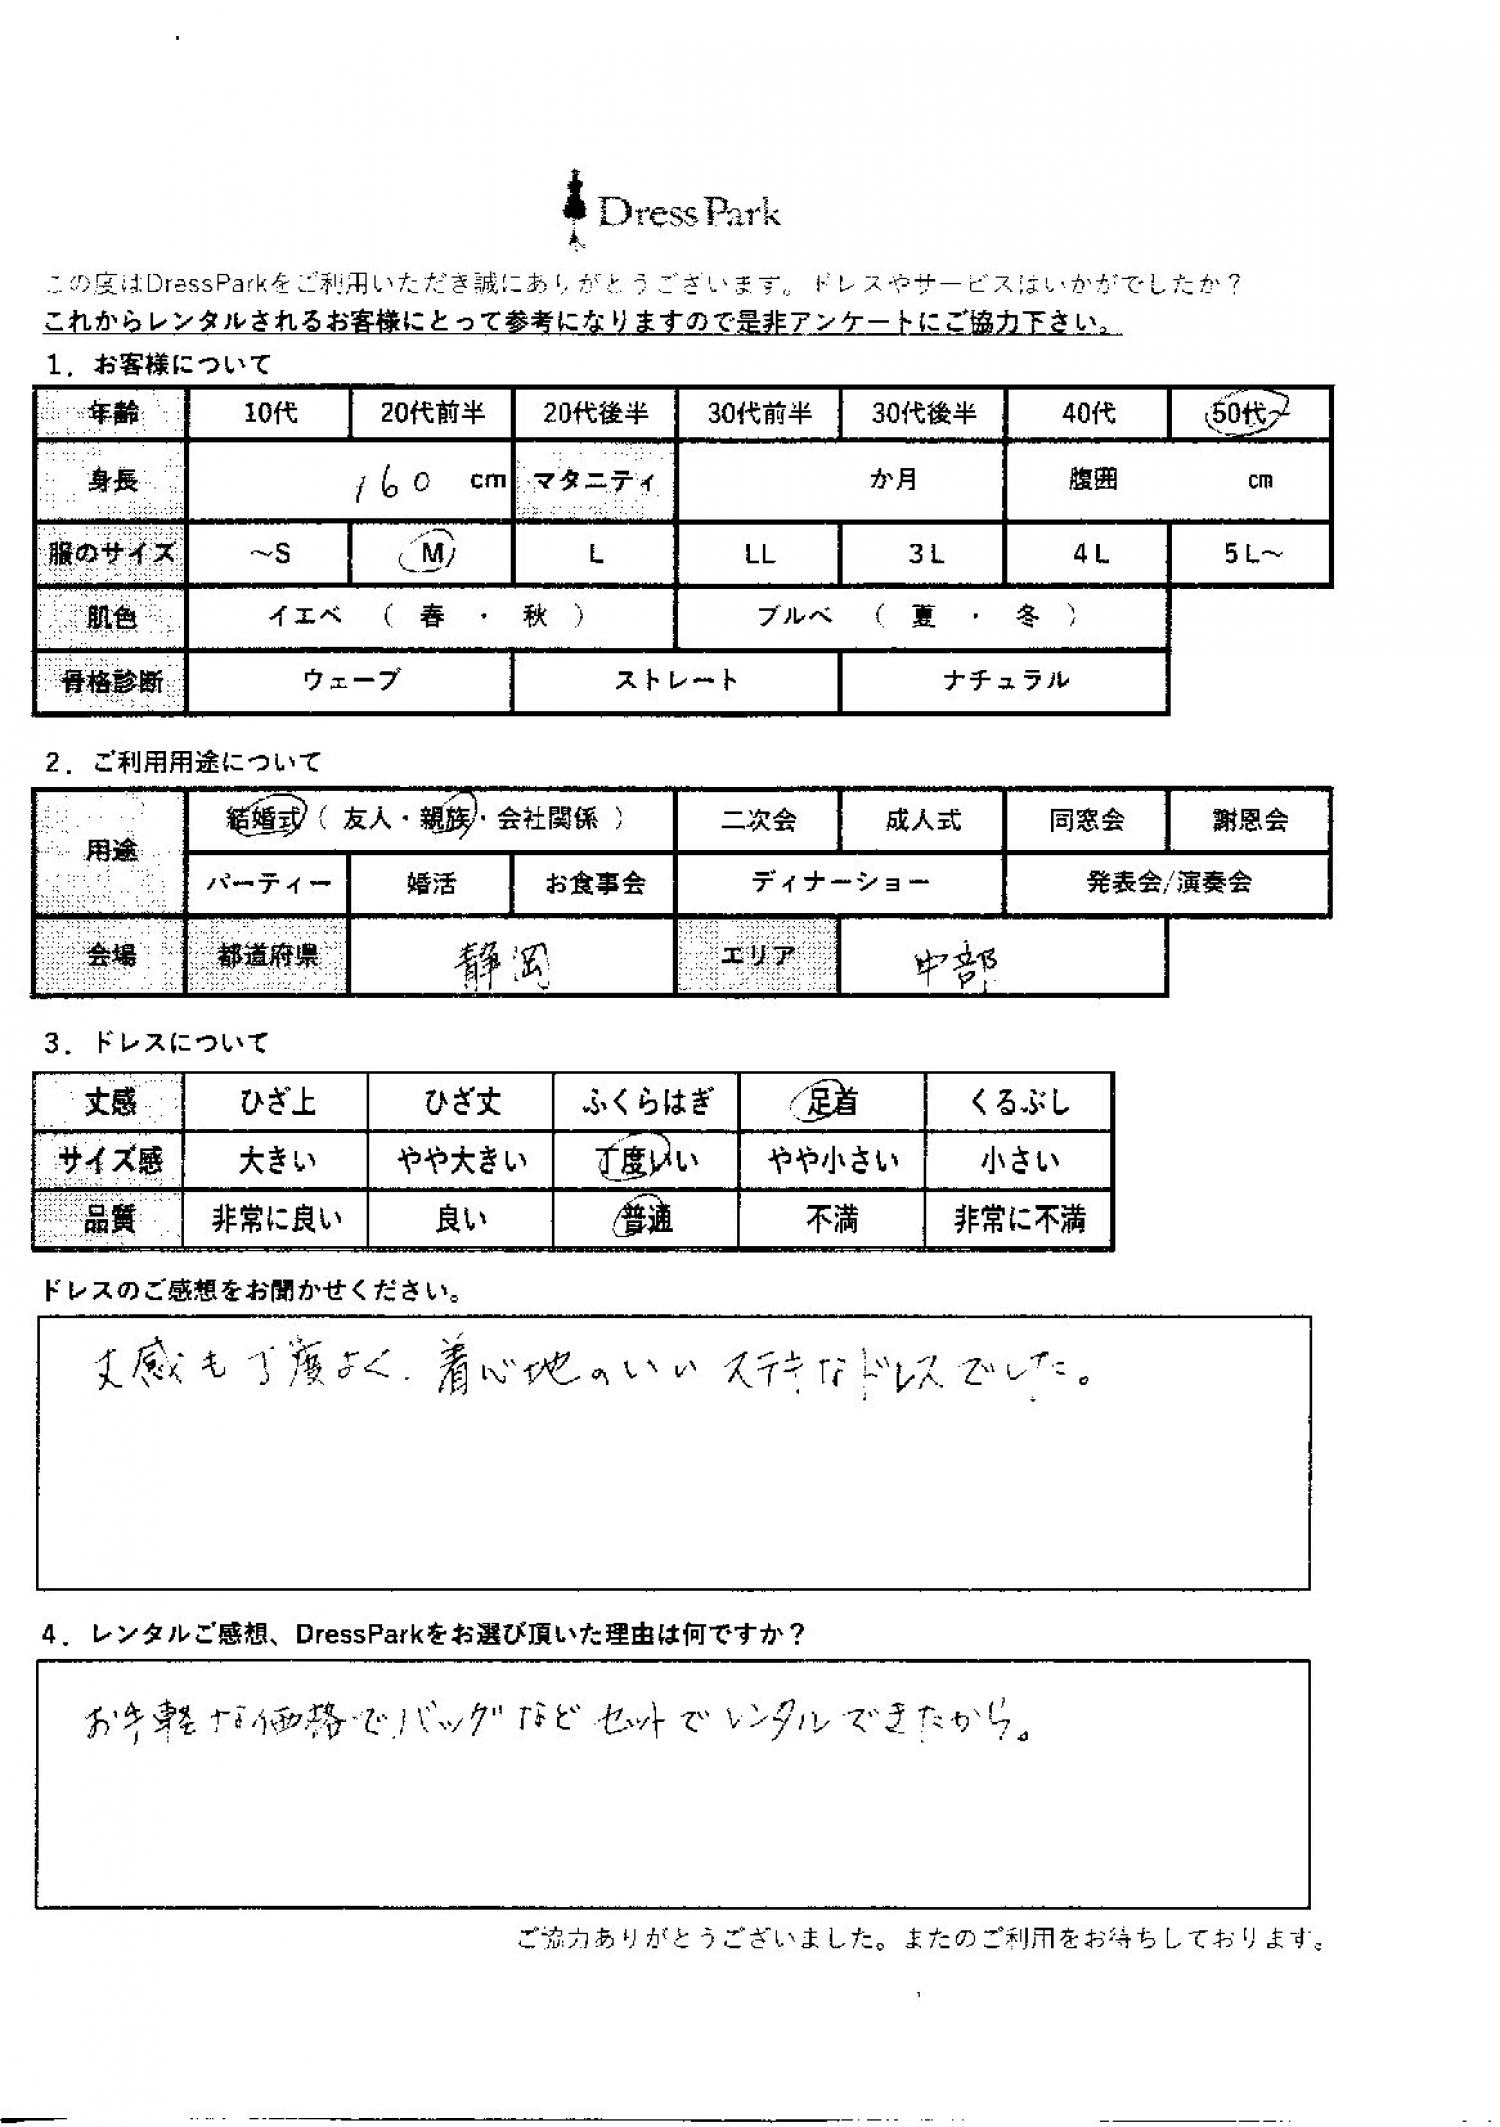 Dress Park
この度はDressParkをご利用いただき誠にありがとうございます。ドレスやサービスはいかがでしたか？
これからレンタルされるお客様にとって参考になりますので是非アンケートにご協力下さい。
1．お客様について
年齢 10代 20代前半 20代後半 30代前半 30代後半 40代 50代~
身長 160 cm マタニティ か月 腹囲 cm
服のサイズ ～S M L LL 3L 4L 5L～
肌色 イエベ （ 春 ・ 秋 ） ブルベ （ 夏 ・ 冬 ）
骨格診断 ウェーブ ストレート ナチュラル
2．ご利用用途について
用途 結婚式（ 友人・親族・会社関係 ） 二次会 成人式 同窓会 謝恩会
パーティー 婚活 お食事会 ディナーショー 発表会/演奏会
会場 都道府県 静岡 エリア 中部
3．ドレスについて
丈感 ひざ上 ひざ丈 ふくらはぎ 足首 くるぶし
サイズ感 大きい やや大きい 丁度いい やや小さい 小さい
品質 非常に良い 良い 普通 不満 非常に不満
ドレスのご感想をお聞かせください。
丈感も丁度よく、着心地のいいステキなドレスでした。
4．レンタルご感想、DressParkをお選び頂いた理由は何ですか？
お手軽な価格でバッグなどセットでレンタルできたから。
ご協力ありがとうございました。またのご利用をお待ちしております。